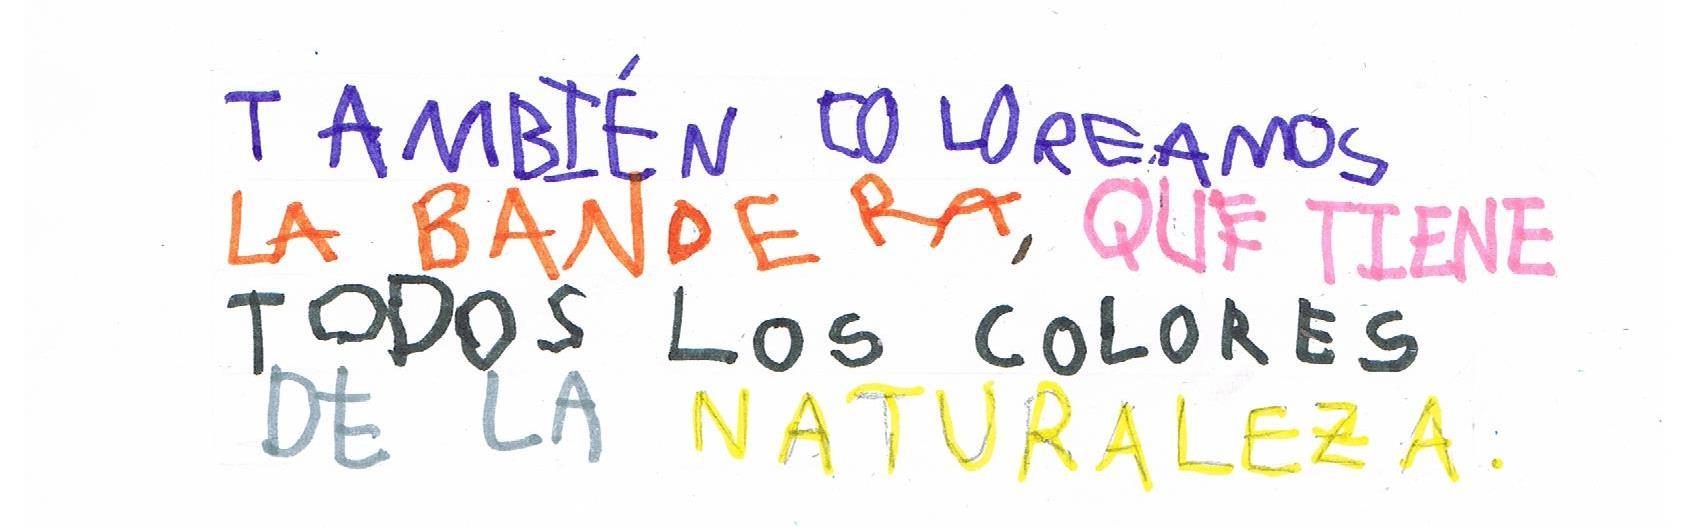 TAMBIÉN COLOREAMOS
LA BANDERA, QUE TIENE
TODOS LOS COLORES
DE LA NATURALEZA.